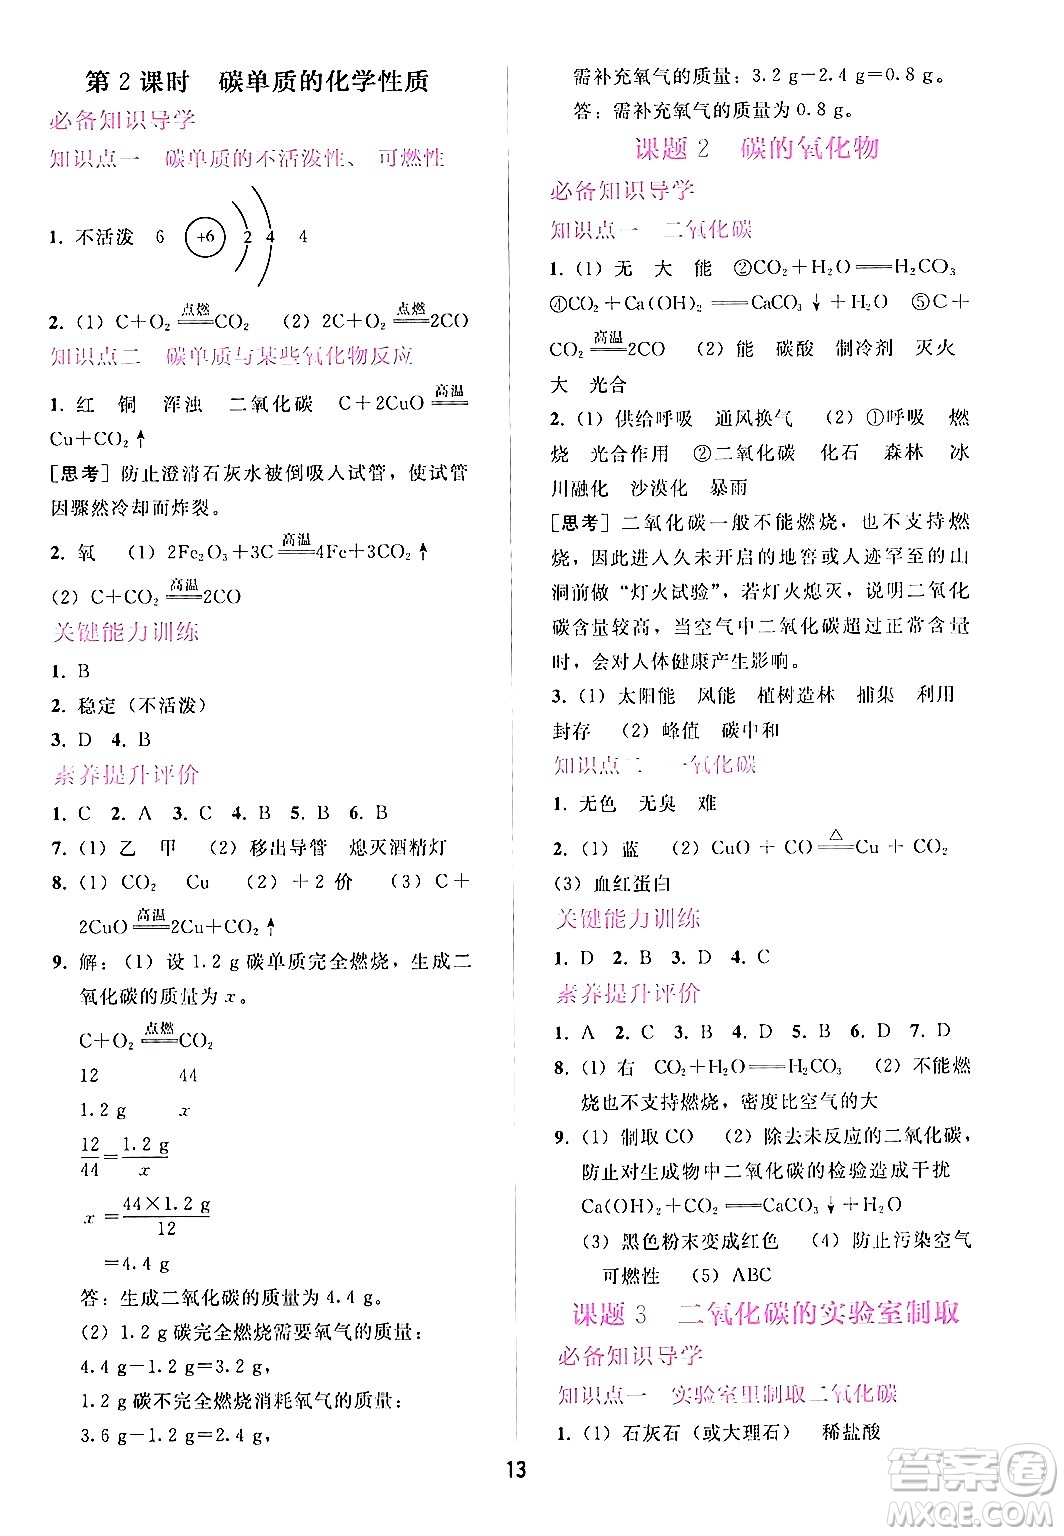 第2课时　碳单质的化学性质
必备知识导学
知识点一　碳单质的不活泼性、可燃性
1. 不活泼　6　+6　2　4　4
2. (1) C＋O₂ 点燃 CO₂　(2) 2C＋O₂ 点燃 2CO
知识点二　碳单质与某些氧化物反应
1. 红　铜　浑浊　二氧化碳　C＋2CuO 高温
Cu＋CO₂↑
[思考] 防止澄清石灰水被倒吸入试管，使试管
因骤然冷却而炸裂。
2. 氧　(1) 2Fe₂O₃＋3C 高温 4Fe＋3CO₂↑
(2) C＋CO₂ 高温 2CO
关键能力训练
1. B
2. 稳定（不活泼）
3. D　4. B
素养提升评价
1. C　2. A　3. C　4. B　5. B　6. B
7. (1) 乙　甲　(2) 移出导管　熄灭酒精灯
8. (1) CO₂　Cu　(2) ＋2价　(3) C＋
2CuO 高温 2Cu＋CO₂↑
9. 解：(1) 设1.2 g碳单质完全燃烧，生成二
氧化碳的质量为x。
C＋O₂ 点燃 CO₂
12　44
1.2 g　x
12/44＝1.2 g/x
x＝44×1.2 g/12
＝4.4 g
答：生成二氧化碳的质量为4.4 g。
(2) 1.2 g碳完全燃烧需要氧气的质量：
4.4 g－1.2 g＝3.2 g，
1.2 g碳不完全燃烧消耗氧气的质量：
3.6 g－1.2 g＝2.4 g，
需补充氧气的质量：3.2 g－2.4 g＝0.8 g。
答：需补充氧气的质量为0.8 g。
课题2　碳的氧化物
必备知识导学
知识点一　二氧化碳
1. (1) 无　大　能　②CO₂＋H₂O══H₂CO₃
④CO₂＋Ca(OH)₂══CaCO₃↓＋H₂O　⑤C＋
CO₂ 高温 2CO　(2) 能　碳酸　制冷剂　灭火
大　光合
2. (1) 供给呼吸　通风换气　(2) ①呼吸　燃
烧　光合作用　②二氧化碳　化石　森林　冰
川融化　沙漠化　暴雨
[思考] 二氧化碳一般不能燃烧，也不支持燃
烧，因此进入久未开启的地窖或人迹罕至的山
洞前做“灯火试验”，若灯火熄灭，说明二氧化
碳含量较高，当空气中二氧化碳超过正常含量
时，会对人体健康产生影响。
3. (1) 太阳能　风能　植树造林　捕集　利用
封存　(2) 峰值　碳中和
知识点二　一氧化碳
1. 无色　无臭　难
2. (1) 蓝　(2) CuO＋CO △ Cu＋CO₂
(3) 血红蛋白
关键能力训练
1. D　2. D　3. D　4. C
素养提升评价
1. A　2. C　3. B　4. D　5. B　6. D　7. D
8. (1) 右　CO₂＋H₂O══H₂CO₃　(2) 不能燃
烧也不支持燃烧，密度比空气的大
9. (1) 制取CO　(2) 除去未反应的二氧化碳，
防止对生成物中二氧化碳的检验造成干扰
Ca(OH)₂＋CO₂══CaCO₃↓＋H₂O
(3) 黑色粉末变成红色　(4) 防止污染空气
可燃性　(5) ABC
课题3　二氧化碳的实验室制取
必备知识导学
知识点一　实验室里制取二氧化碳
1. (1) 石灰石（或大理石）　稀盐酸
13
答案圈
MXQE.COM